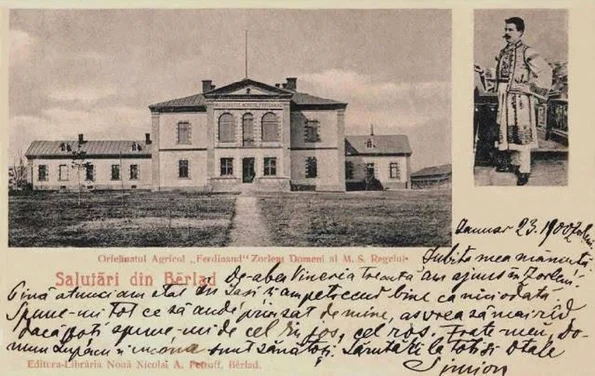 Orfelinatul Agricol „Ferdinand" Zorleni Domeni al M. S. Regelui
Salutări din Bêrlad
Ianuar 23. 1900 Zorleni
Iubita mea
De-abea Vineria trecută am ajuns în Zorleni!
Pînă atunci am stat în Iași și am petrecut bine ca niciodata
Spune-mi tot ce să aude pe de mine, aș vrea să mai rîd
dacă poți spune-mi de cel din jos, cel roș. Frate-meu, do-
mnu Lupascu și sunt sănătoși. Sărutări la toți și
Simion
Editura-Librăria Nouă Nicolai A. Petroff, Bêrlad.